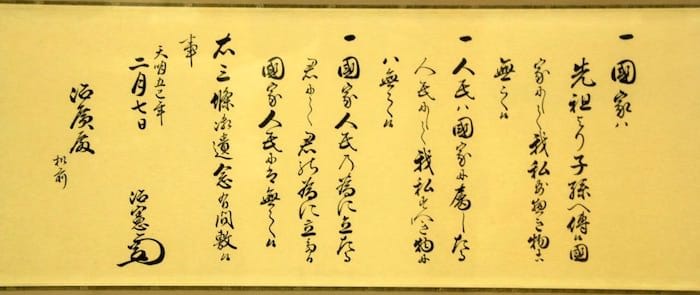 一 國家ハ
先祖より子孫へ傳候國
家にして我私すへき物ニハ
無之候
一 人民ハ國家に属したる
人民にして我私すへき物に
ハ無之候
一 國家人民の為に立たる
君にして君の為に立たる
國家人民にハ無之候
右三條御遺念有間敷候
事
天明五巳年
二月七日
治憲
治廣殿
机前